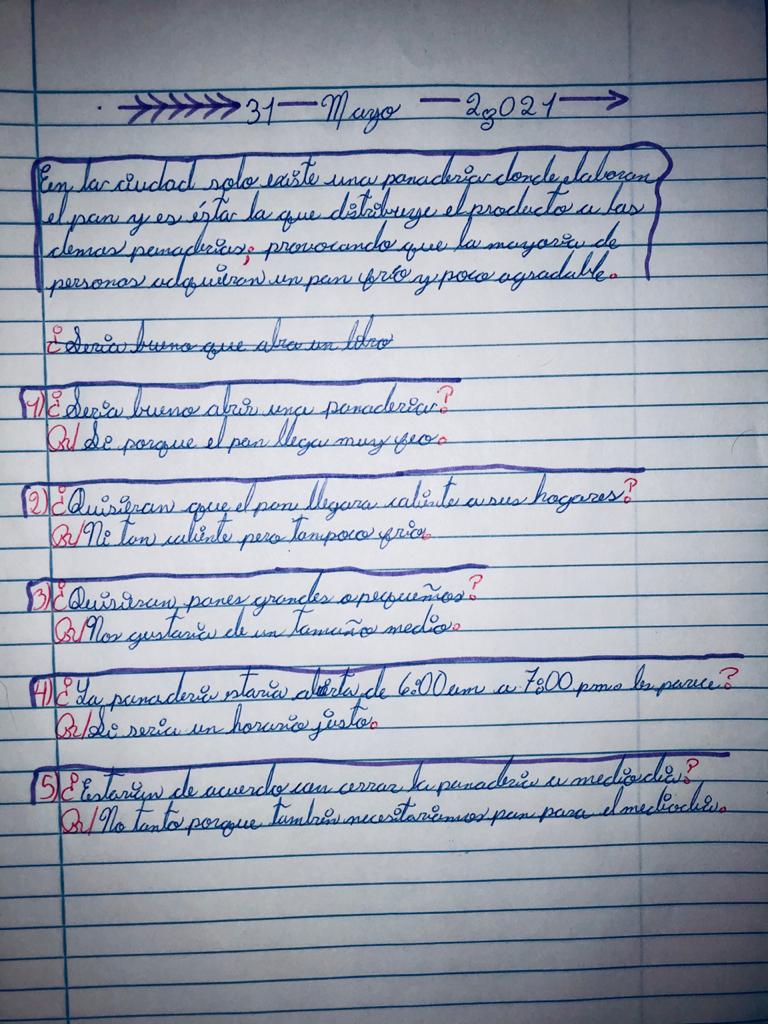 31 — Mayo — 2,021
En la ciudad solo existe una panaderia donde elaboran
el pan y es ésta la que distribuye el producto a las
demas panaderias; provocando que la mayoria de
personas adquieran un pan frío y poco agradable.
¿Seria bueno que abra un libro
1) ¿Seria bueno abrir una panaderia?
R/ Si porque el pan llega muy feo.
2) ¿Quisieran que el pan llegara caliente a sus hogares?
R/ Ni tan caliente pero tampoco frio.
3) ¿Quisieran panes grandes o pequeños?
R/ Nos gustaria de un tamaño medio.
4) ¿La panaderia estaria abierta de 6:00 am a 7:00 pm. les parece?
R/ Si seria un horario justo.
5) ¿Estarian de acuerdo con cerrar la panaderia a mediodia?
R/ No tanto porque tambien necesitariamos pan para el mediodia.